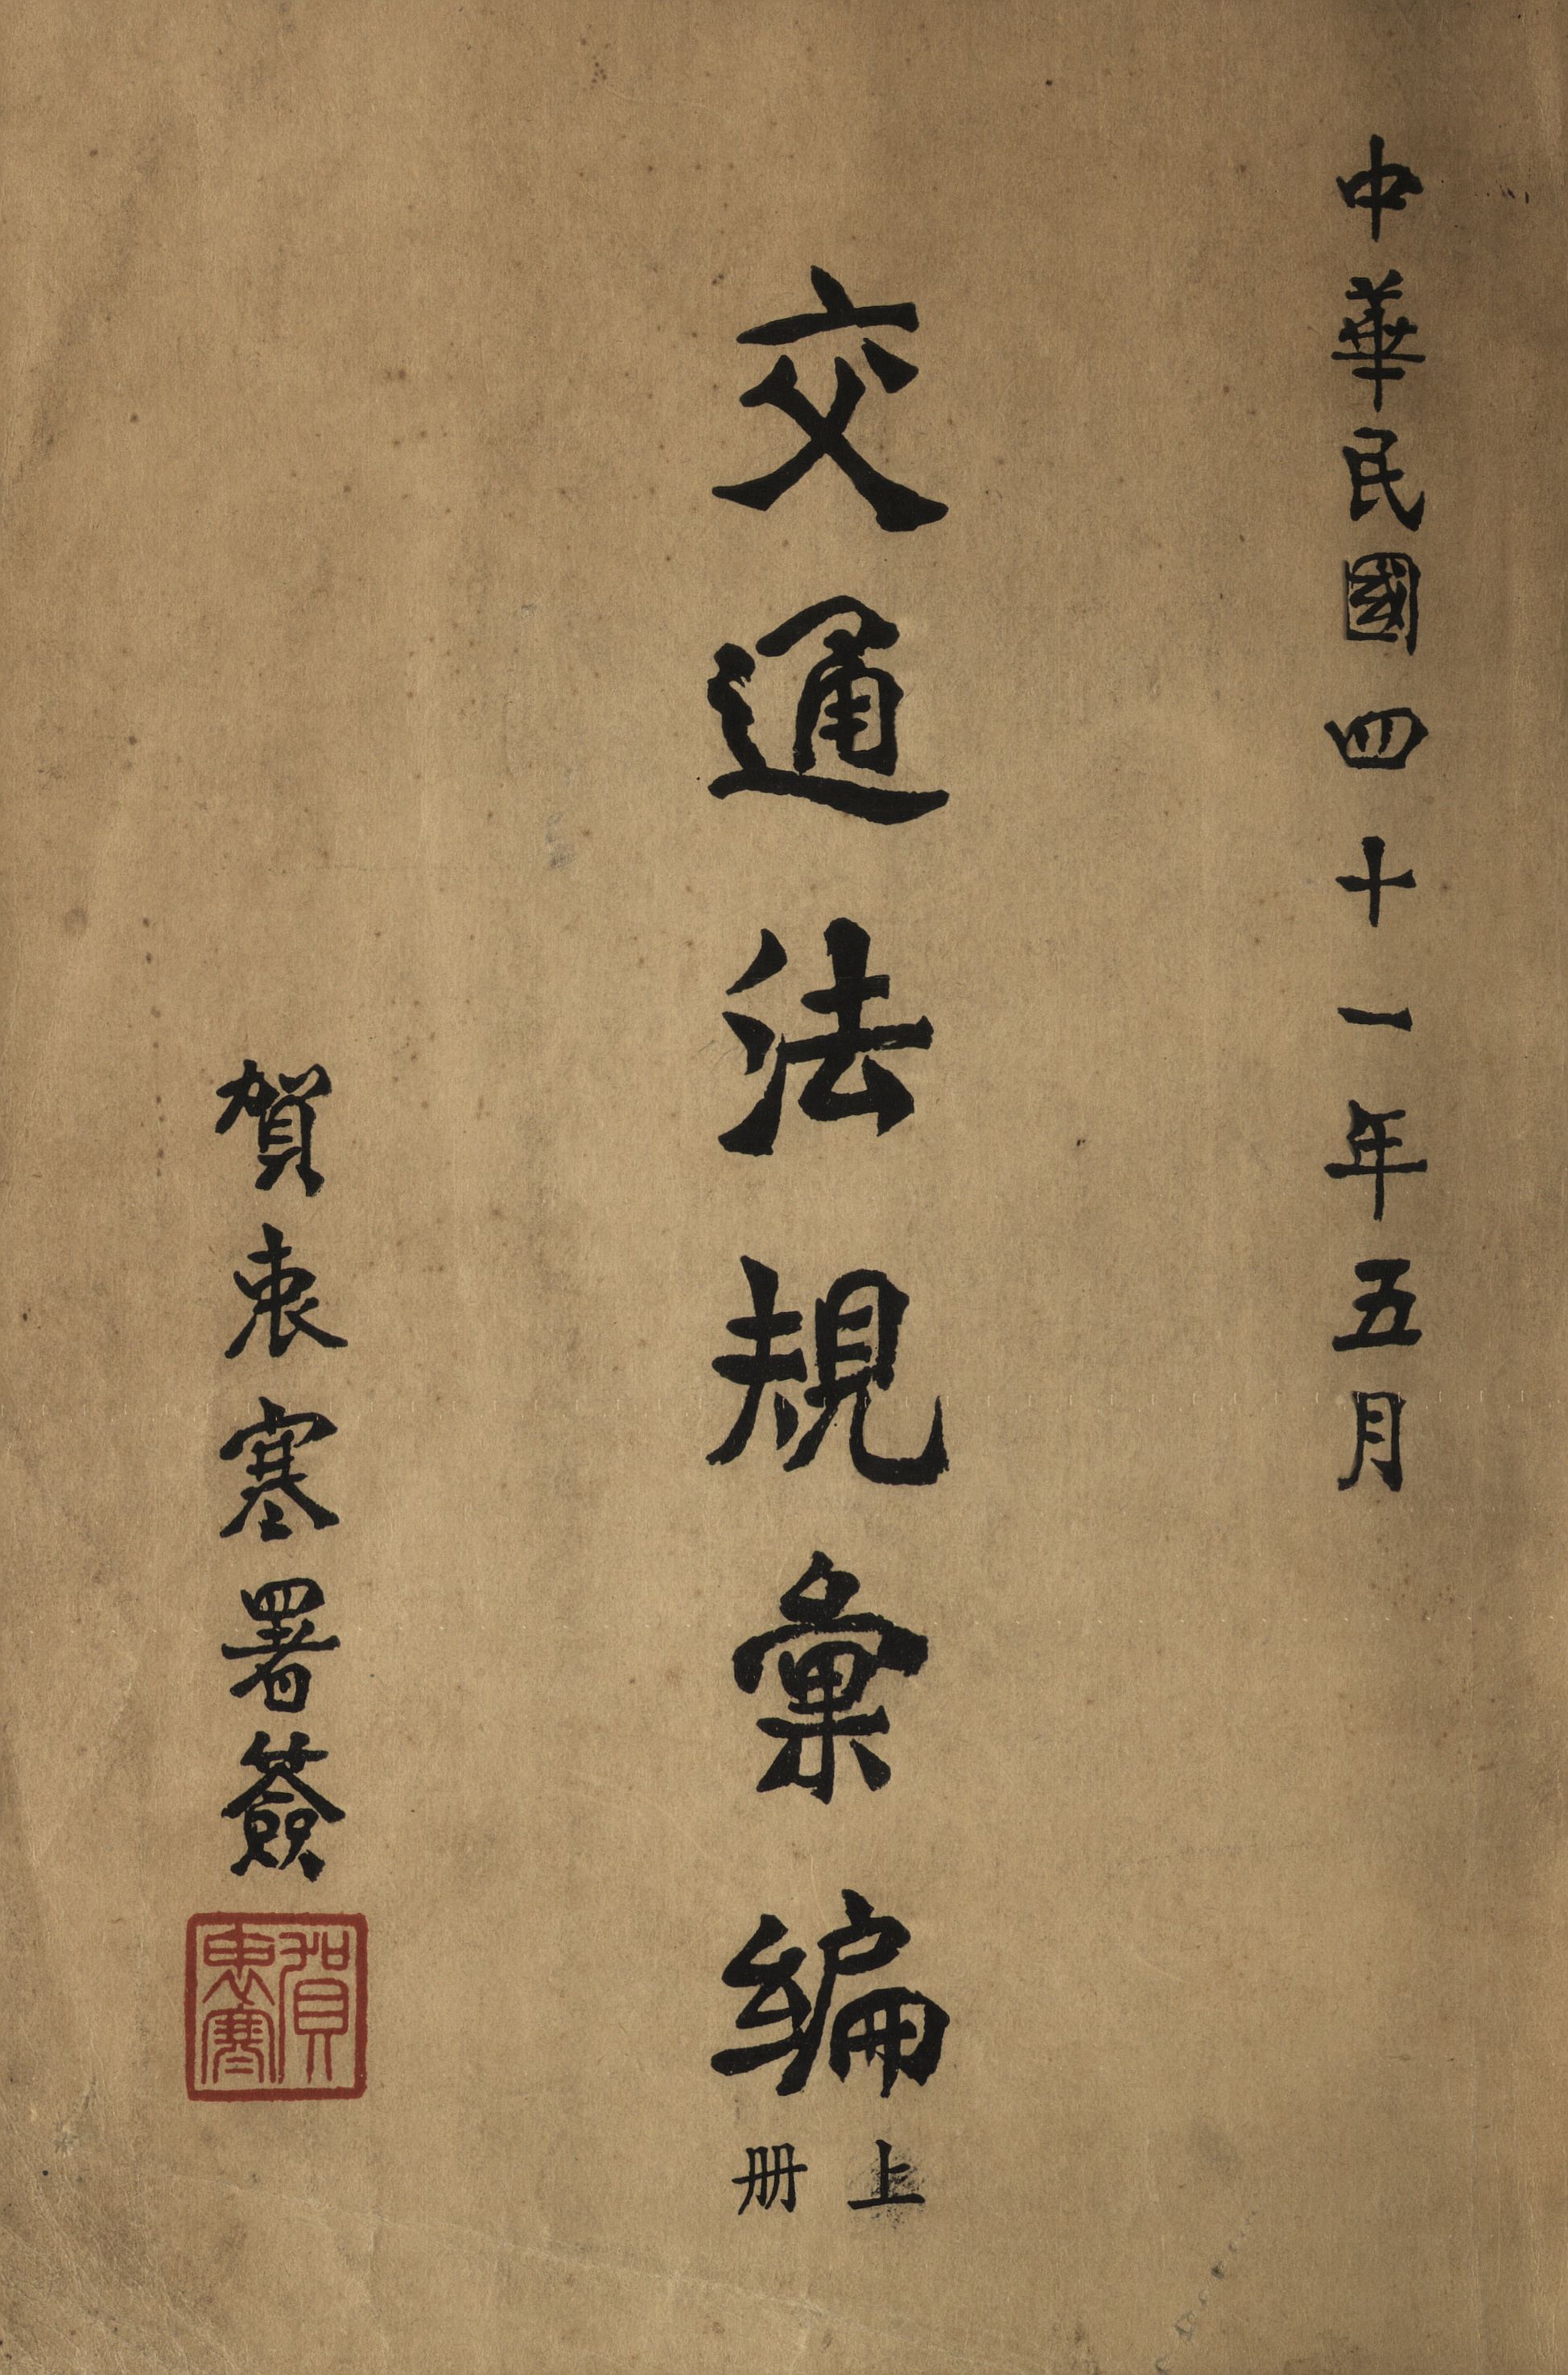 中華民國四十一年五月
交通法規彙編
上册
賀衷寒署簽
賀衷寒